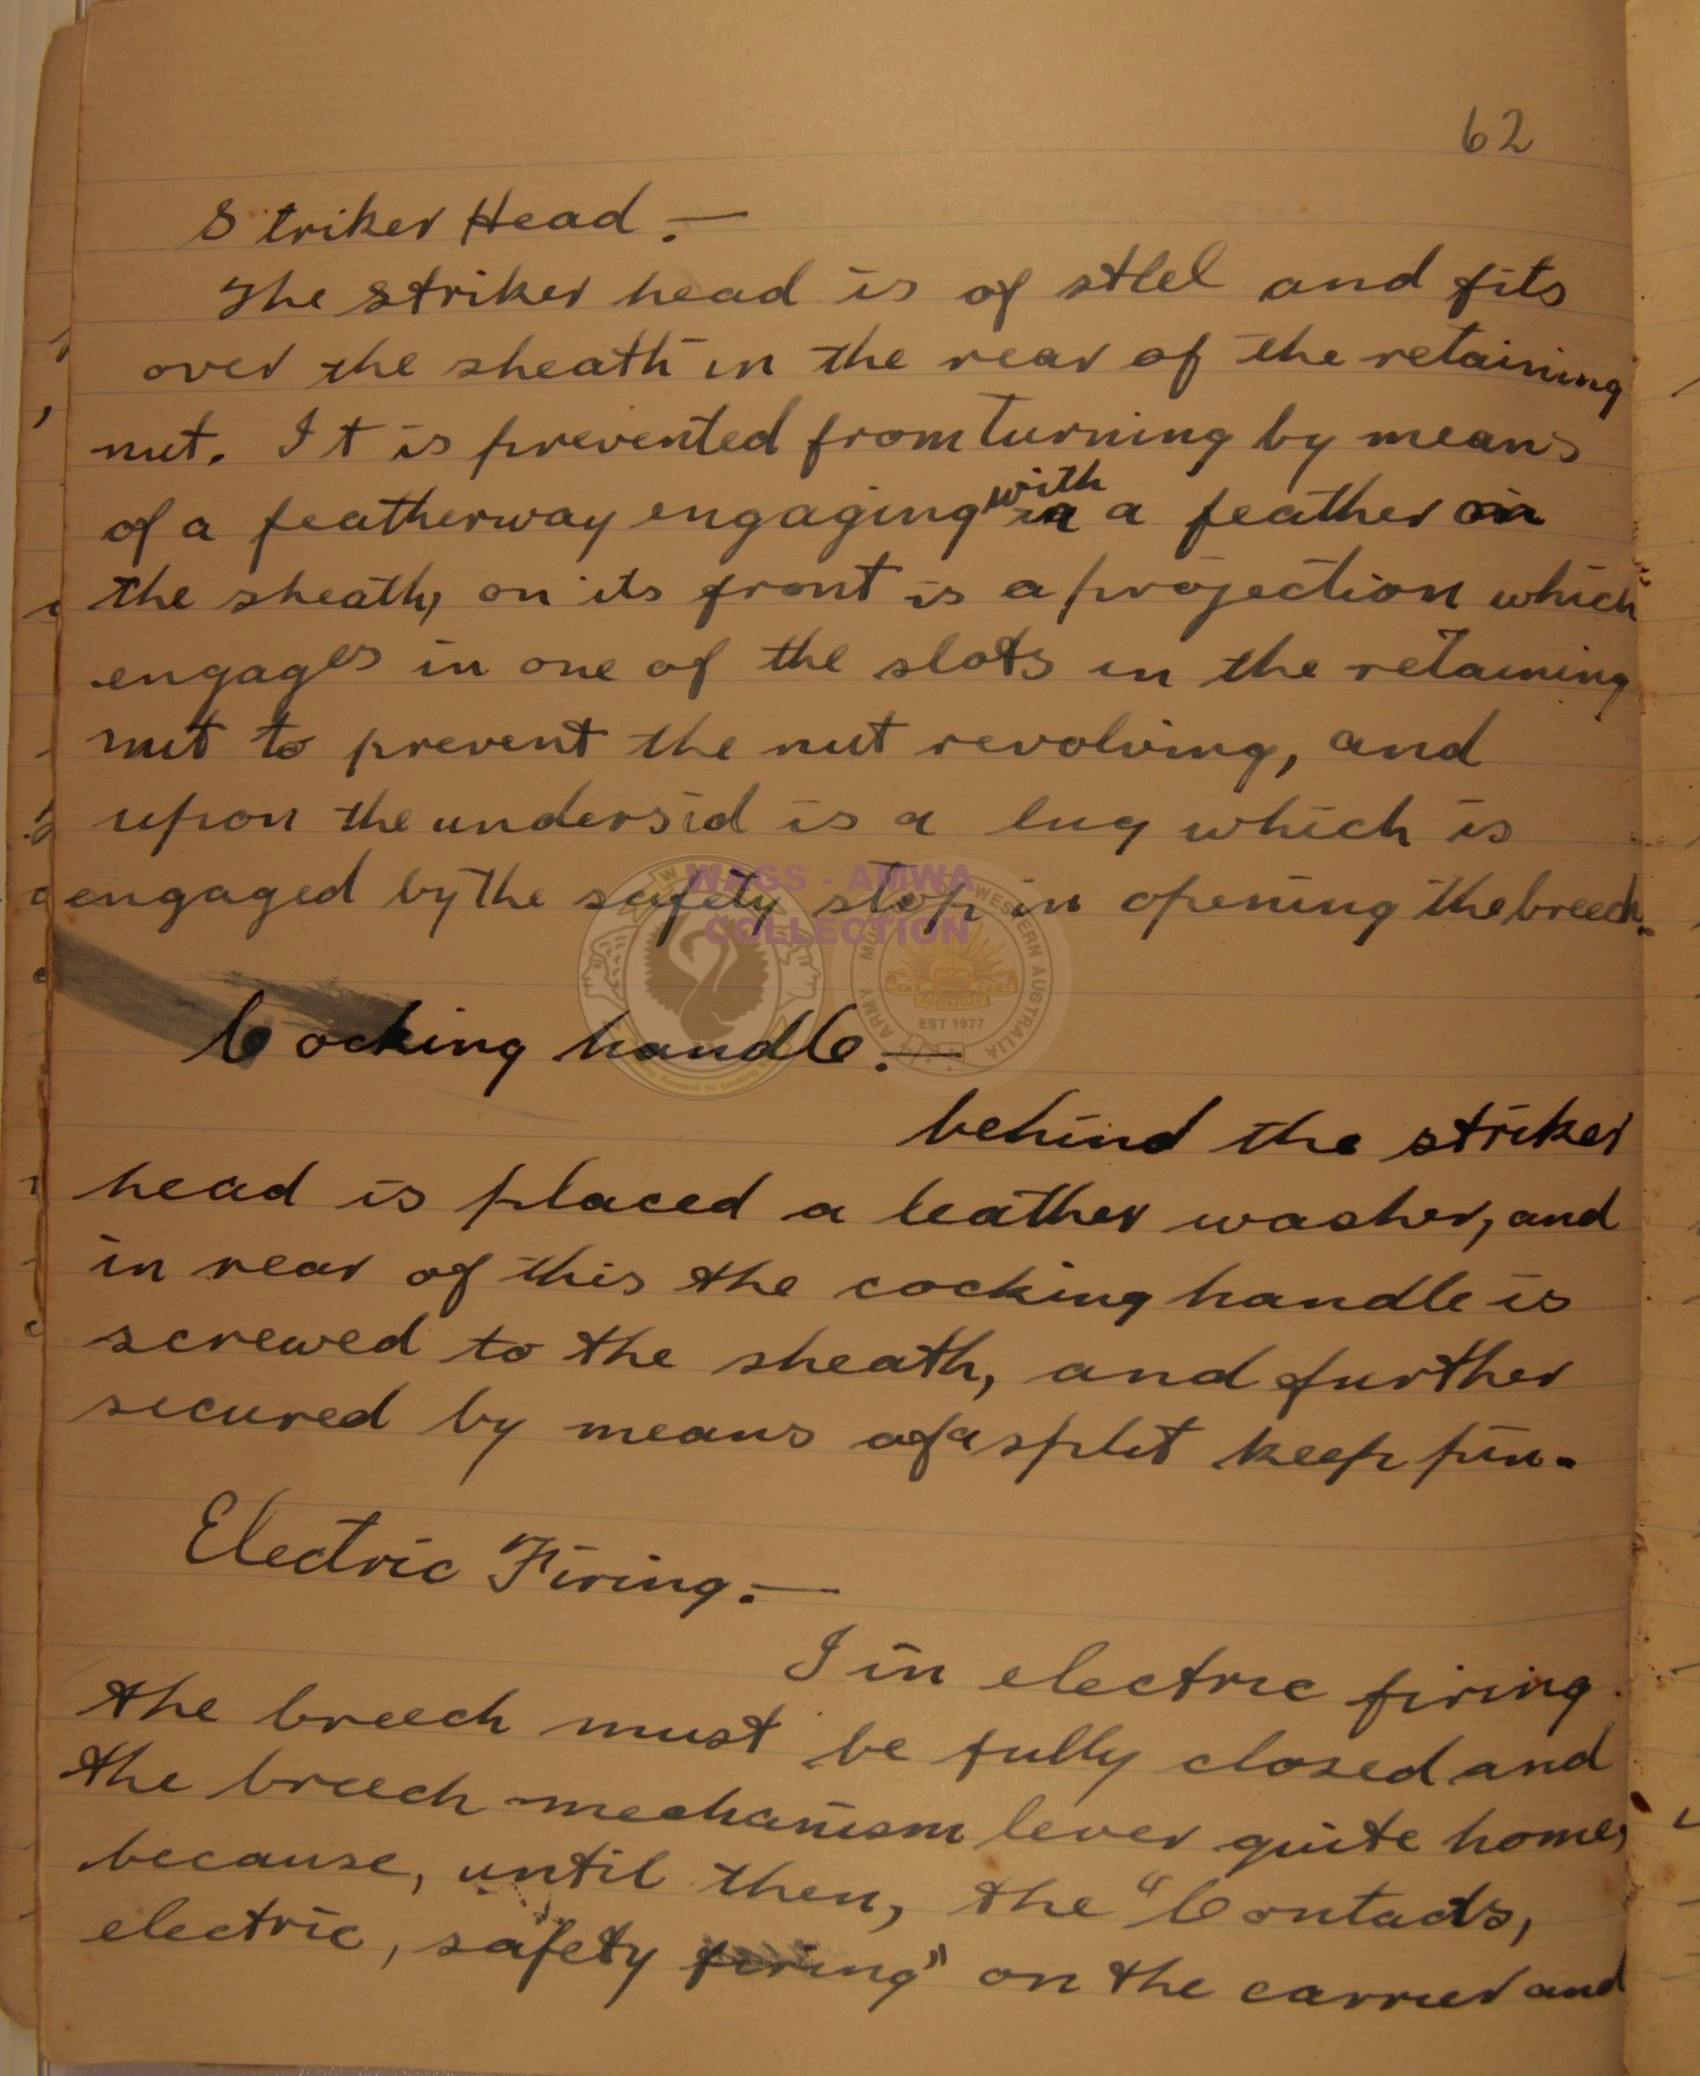 62
Striker Head.—
The striker head is of steel and fits
over the sheath in the rear of the retaining
nut. It is prevented from turning by means
of a featherway engaging with a feather on
the sheath, on its front is a projection which
engages in one of the slots in the retaining
nut to prevent the nut revolving, and
upon the undersid is a lug which is
engaged by the safety stop in opening the breech.
WAGS - AMWA
COLLECTION
EST 1977
Cocking handle.—
behind the striker
head is placed a leather washer, and
in rear of this the cocking handle is
screwed to the sheath, and further
secured by means of a split keep pin.
Electric Firing.—
I in electric firing
the breech must be fully closed and
the breech mechanism lever quite home,
because, until then, the "Contacts,
electric, safety firing" on the carrier and